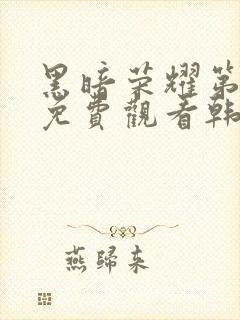 黑暗荣耀第
免費觀看韩
燕歸来